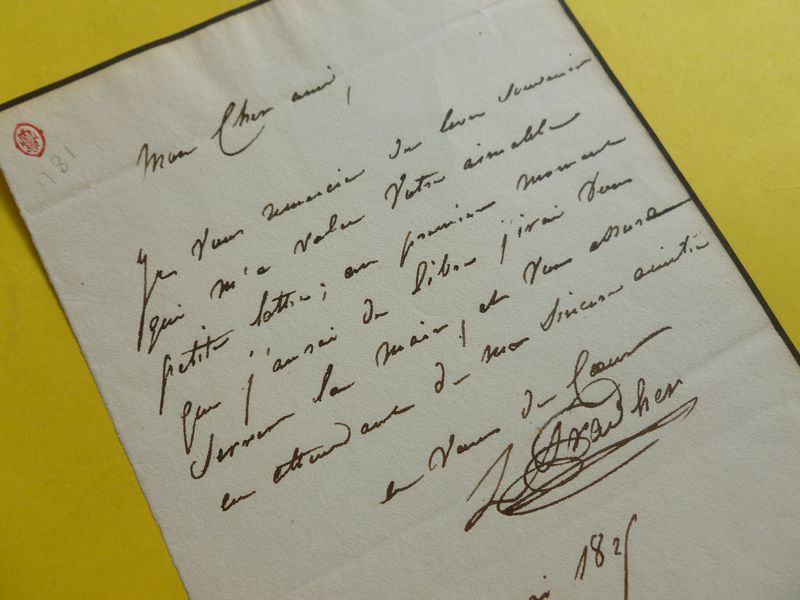 1781
Mon Cher ami,
Je vous remercie du bon souvenir
qui m'a valu votre aimable
petite lettre; au premier moment
que j'aurai de libre j'irai vous
serrer la main, et vous assurer
en attendant de mon sincère amitié
en vous de Coeur
ai 182